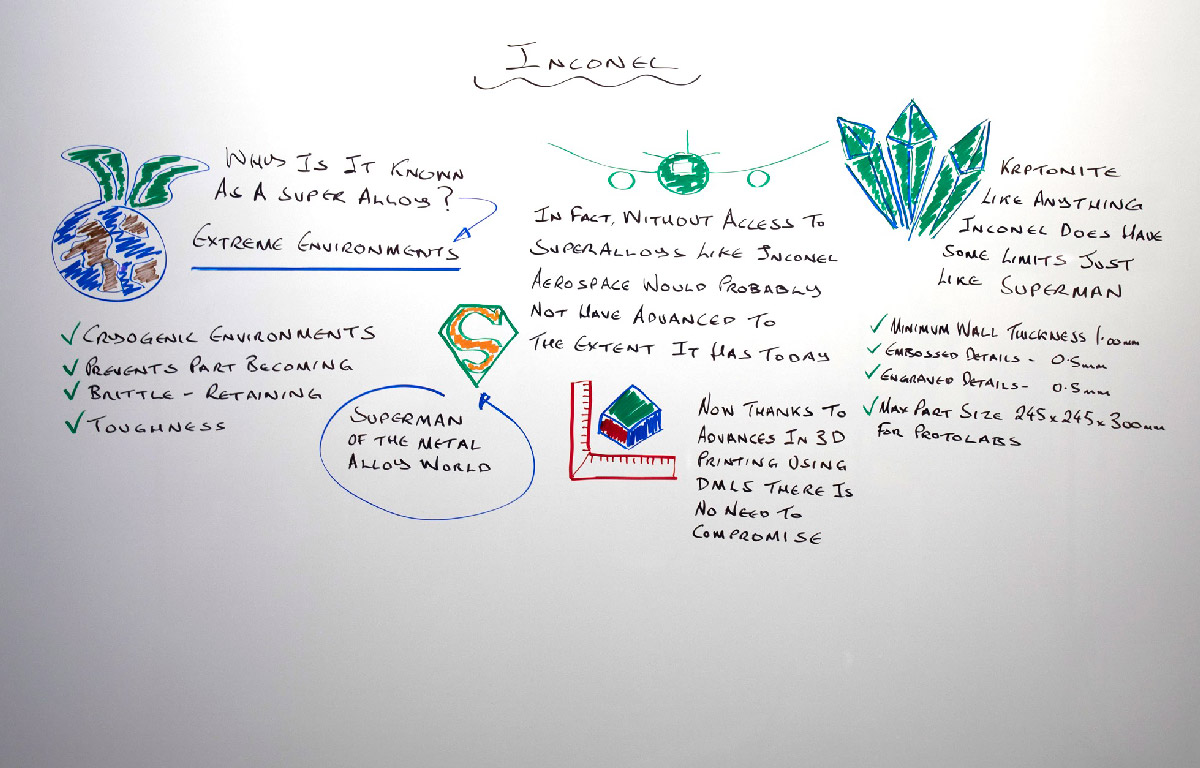 INCONEL
WHY IS IT KNOWN
AS A SUPER ALLOY?
EXTREME ENVIRONMENTS
✓ CRYOGENIC ENVIRONMENTS
✓ PREVENTS PART BECOMING
✓ BRITTLE - RETAINING
✓ TOUGHNESS
S
SUPERMAN
OF THE METAL
ALLOY WORLD
IN FACT, WITHOUT ACCESS TO
SUPERALLOYS LIKE INCONEL
AEROSPACE WOULD PROBABLY
NOT HAVE ADVANCED TO
THE EXTENT IT HAS TODAY
NOW THANKS TO
ADVANCES IN 3D
PRINTING USING
DMLS THERE IS
NO NEED TO
COMPROMISE
KRPTONITE
LIKE ANYTHING
INCONEL DOES HAVE
SOME LIMITS JUST
LIKE SUPERMAN
✓ MINIMUM WALL THICKNESS 1.00mm
✓ EMBOSSED DETAILS - 0.5mm
✓ ENGRAVED DETAILS - 0.5mm
✓ MAX PART SIZE 245x245x300mm
FOR PROTOLABS